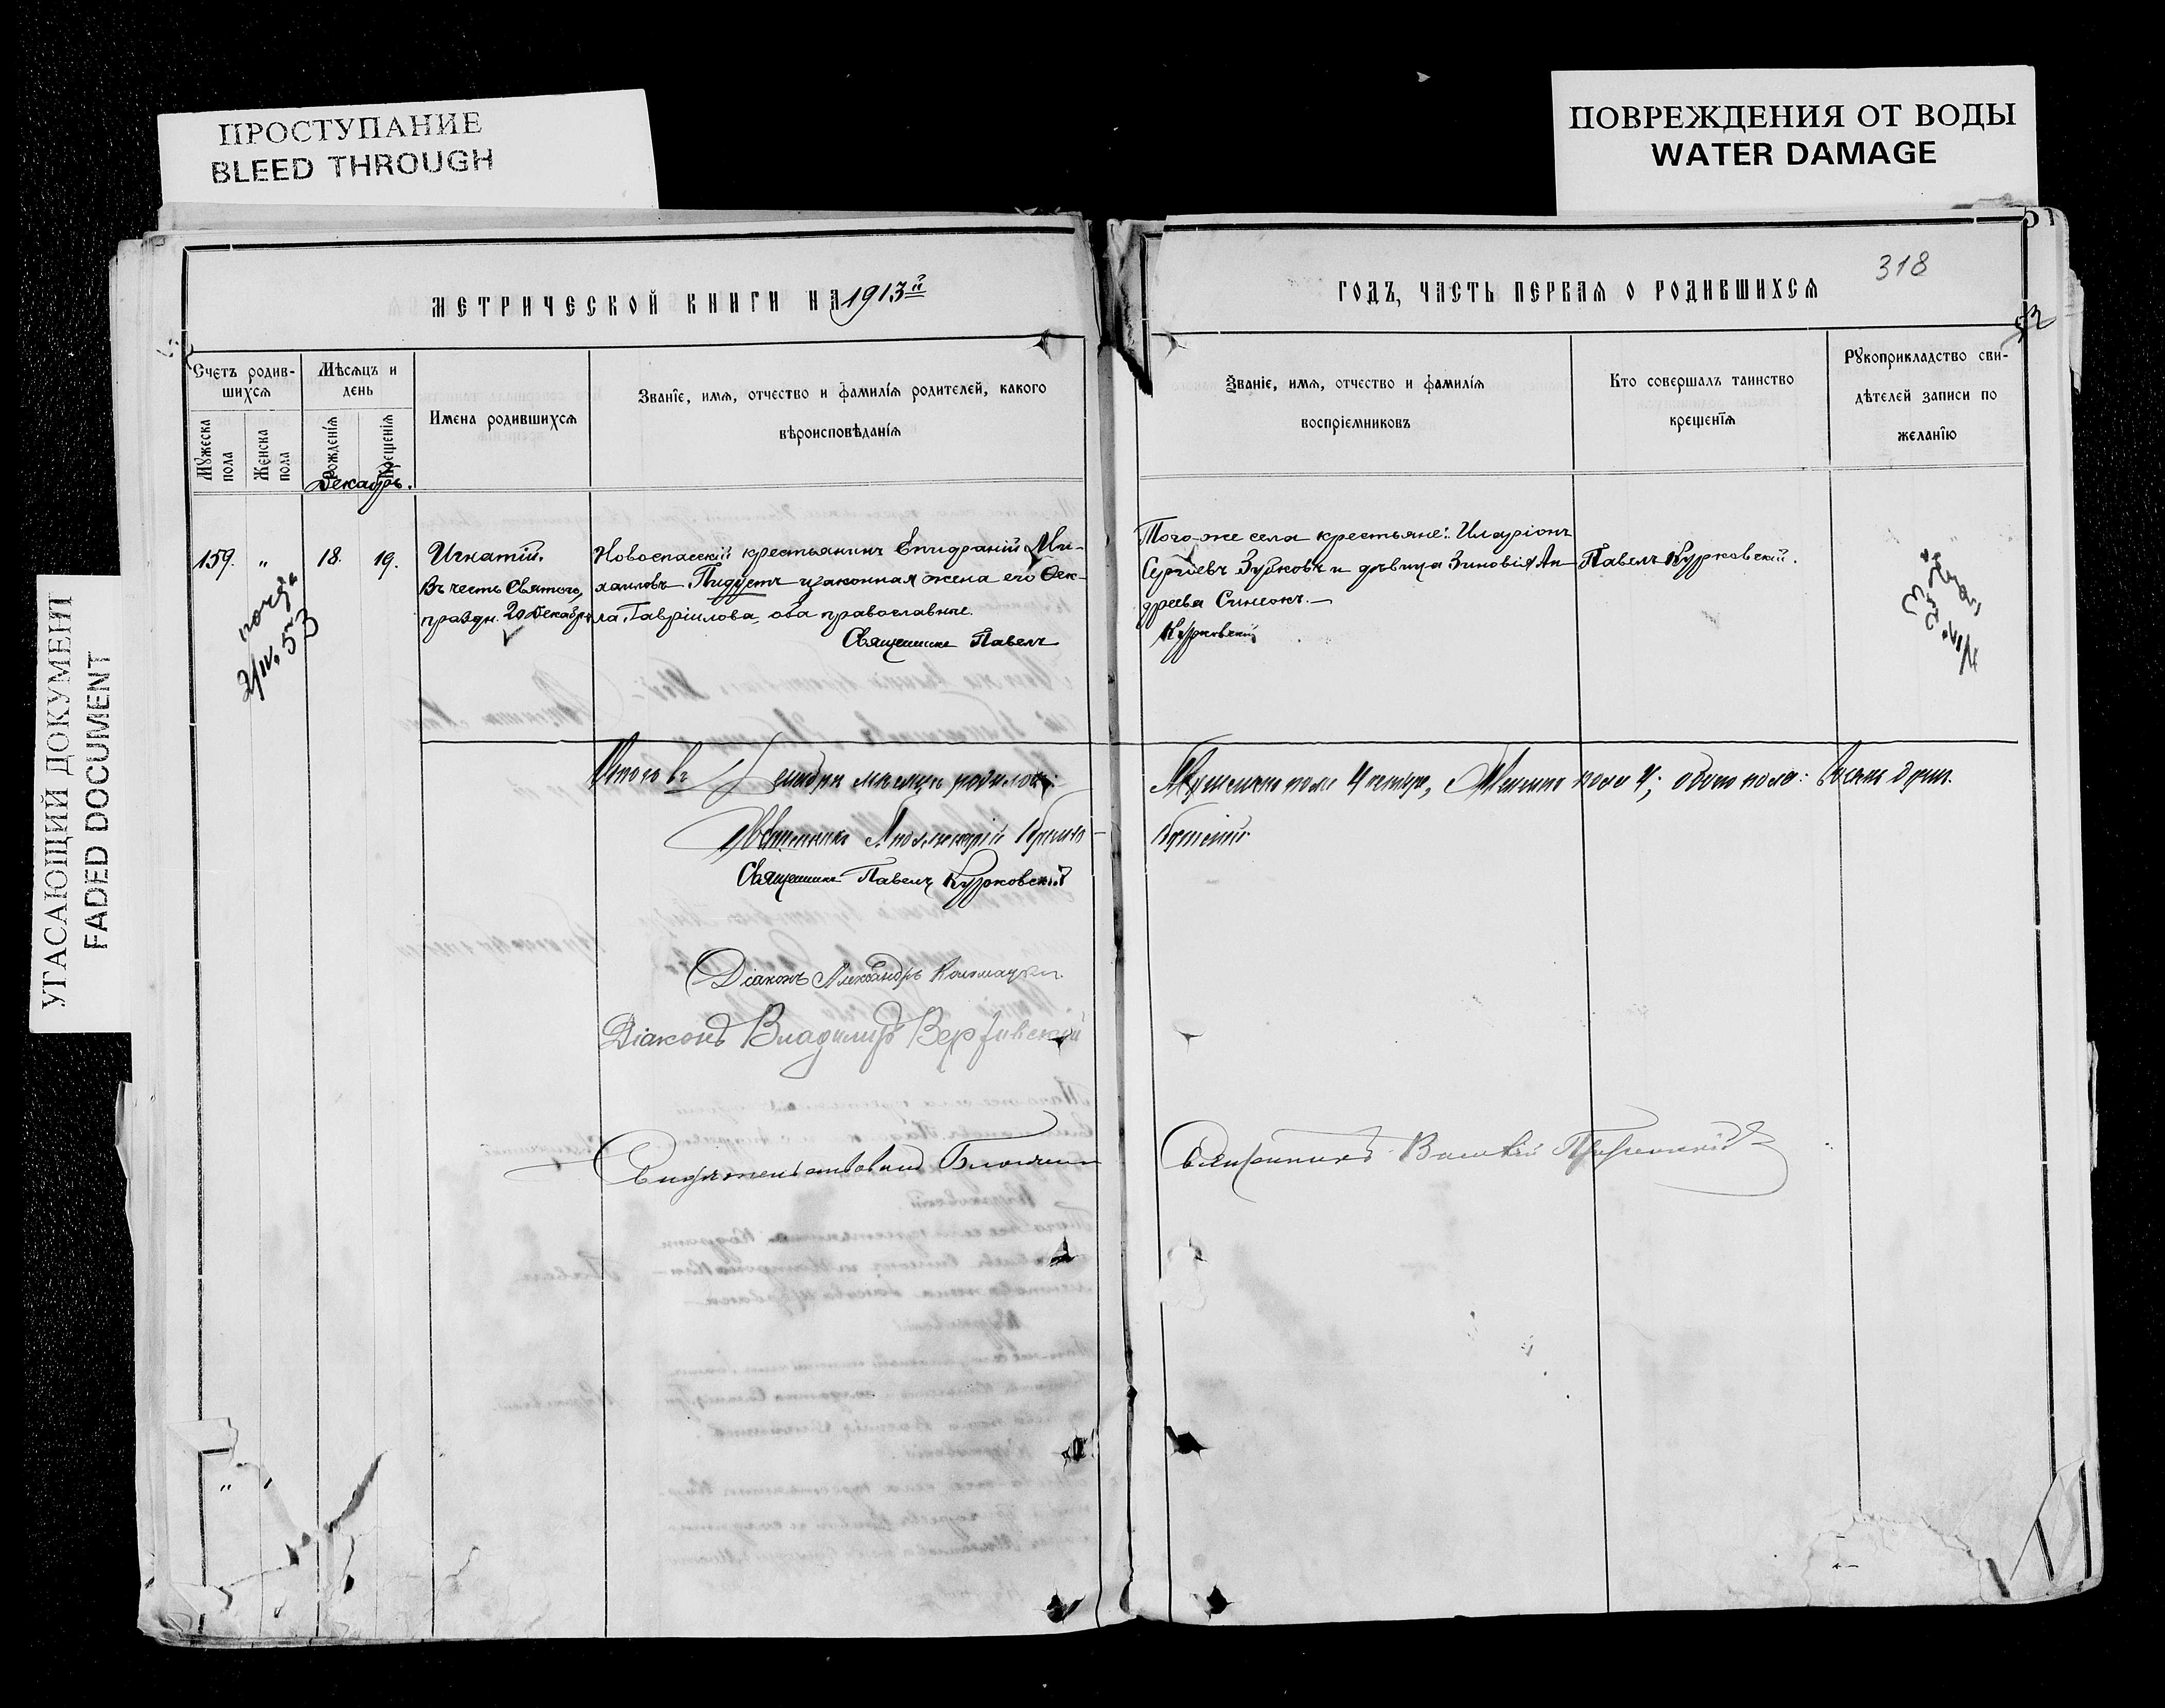 ПРОСТУПАНИЕ
BLEED THROUGH
ПОВРЕЖДЕНИЯ ОТ ВОДЫ
WATER DAMAGE
УГАСАЮЩИЙ ДОКУМЕНТ
FADED DOCUMENT
МЕТРИЧЕСКОЙ КНИГИ НА 1913й
Счетъ родив-
шихся
Мѣсяцъ и
день
Мужеска
пола
Женска
пола
Рожденія
Крещенія
Имена родившихся
Званіе, имя, отчество и фамилія родителей, какого
вѣроисповѣданія
Декабрь.
159. " 18. 19.
Игнатій.
Въ честь Святого,
праздн. 20 декабря
Новоспасскій крестьянинъ Епифраній Ми-
хаиловъ Пидустъ и законная жена его Ѳек-
ла Гавріилова, оба православные.
Священникъ Павелъ
53
Итого въ Декабрѣ мѣсяцѣ родилось:
Священникъ
Священникъ Павелъ Курковскій
Діаконъ Александръ
Діаконъ Владиміръ
318
ГОДЪ, ЧАСТЬ ПЕРВАЯ О РОДИВШИХСЯ
Званіе, имя, отчество и фамилія
воспріемниковъ
Кто совершалъ таинство
крещенія
Рукоприкладство сви-
дѣтелей записи по
желанію
Того-же села крестьяне: Иларіонъ
Сергіевъ Зубковъ и дѣвица Зиновія Ан-
дреева Синеокъ.—
Курковскій
Павелъ Курковскій.
Мужеска пола 4 четыре, Женска пола 4; обоего пола: Восемь душъ.
Свидѣтельствовалъ Благочин
Священникъ Василій